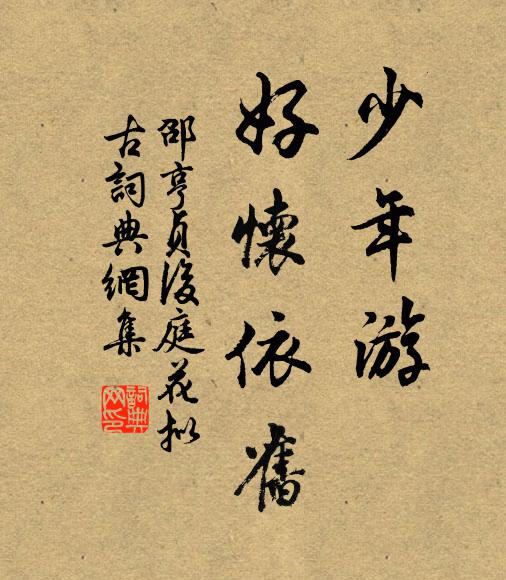 少年游
好懷依舊
邵亨貞後庭花拟
古詞典網集
詞典
网印